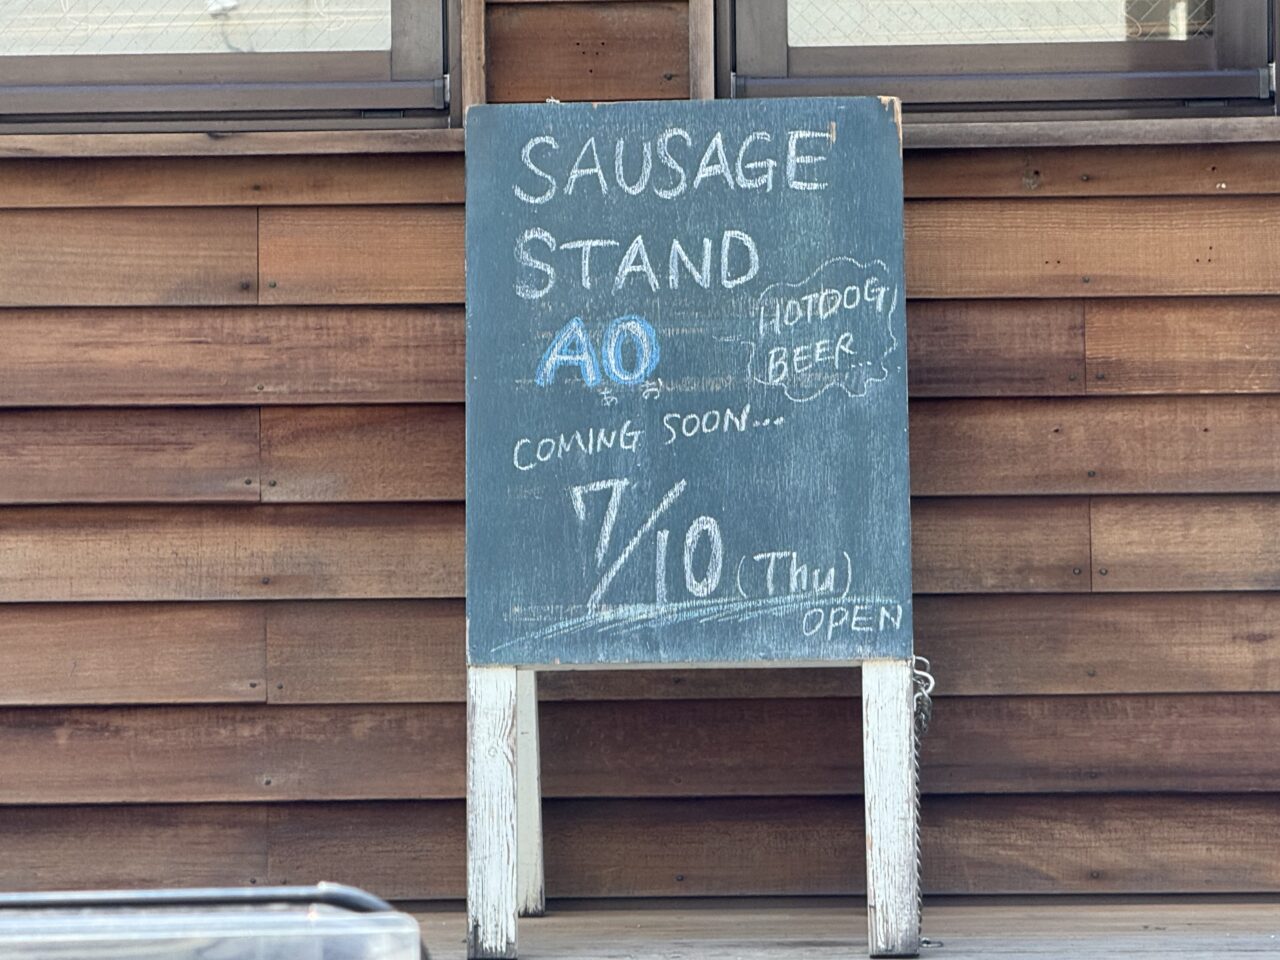 SAUSAGE
STAND
AO
あお
HOTDOG
BEER...
COMING SOON...
7/10 (Thu)
OPEN